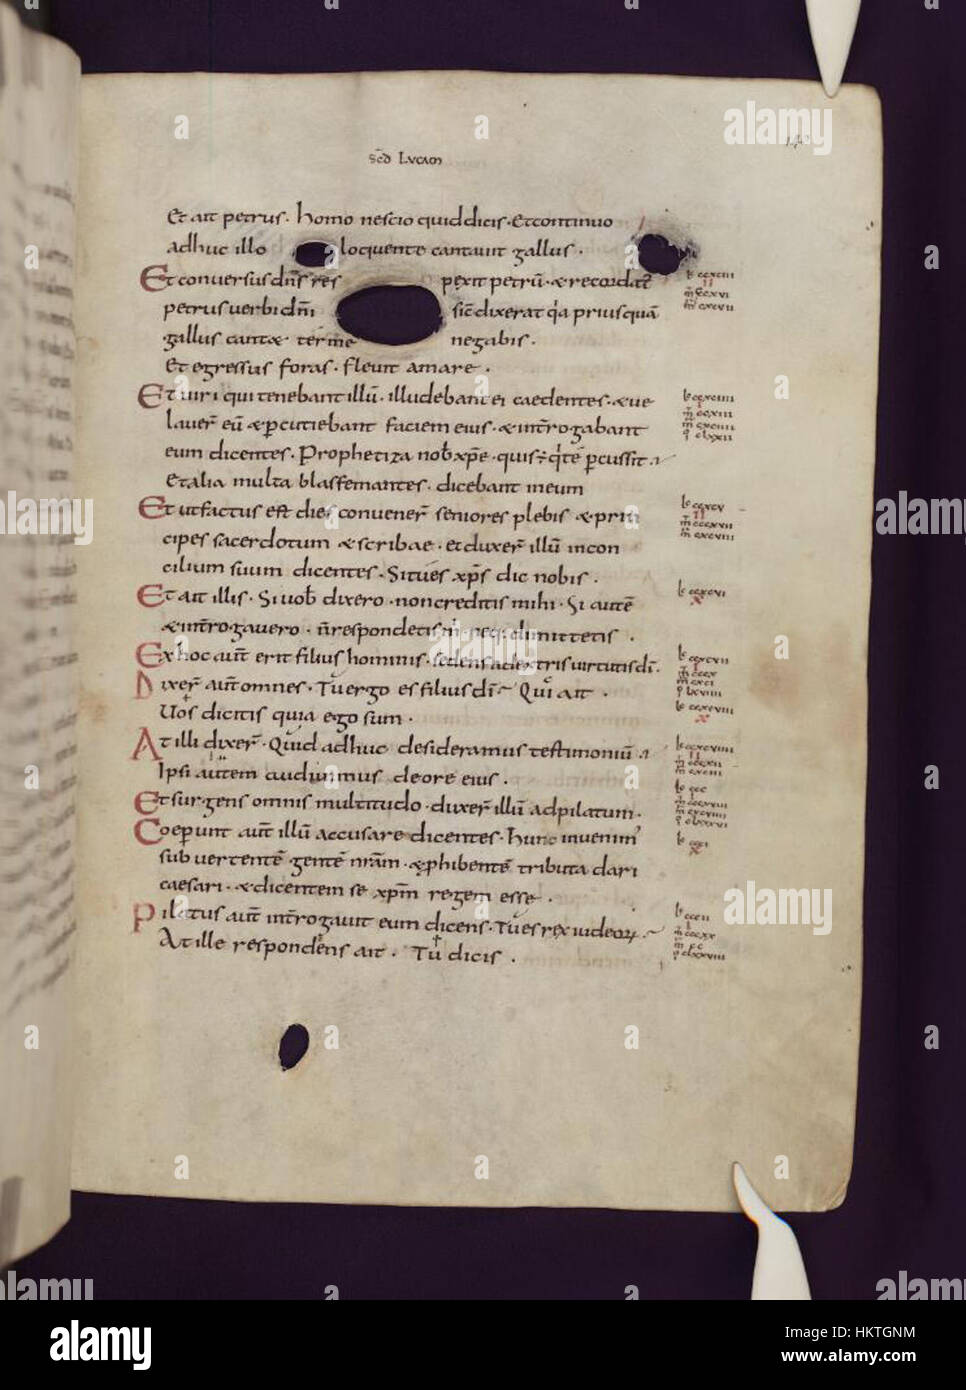 Secđ Lucam
Et ait petrus· homo nescio quid dicis· Et continuo
adhuc illo loquente cantauit gallus·
Et conversus dn̄s respexit petrū· & recordat̄
petrus uerbi dn̄i sic̄ dixerat q̇a priusquā
gallus cant& ter me negabis·
Et egressus foras· fleuit amare·
Et uiri qui tenebant illū· illudebant ei caedentes· & ue
lauer̄ eū & ꝑcutiebant faciem eius· & int̄rogabant
eum dicentes· Prophetiza nob̄ xp̄e· quis ÷ q̇ te ꝑcussit
Et alia multa blasfemantes· dicebant in eum
Et ut factus est dies conuener̄ seniores plebis & prin
cipes sacerdotum & scribae· et duxer̄ illū in con
cilium suum dicentes· Si tu es xp̄s dic nobis·
Et ait illis· Si uob̄ dixero· non creditis mihi· Si autē
& int̄rogauero· n̄ respondetis m̄ neq; dimittetis·
Ex hoc aut̄ erit filius hominis· sedens a dextris uirtutis dī·
Dixer̄ aut̄ omnes· Tu ergo es filius dī Qui ait·
Uos dicitis quia ego sum·
At illi dixer̄· Quid adhuc desideramus testimoniū
Ipsi autem audiuimus de ore eius·
Et surgens omnis multitudo· duxer̄ illū ad pilatum·
Coeperunt aut̄ illū accusare dicentes· Hunc inuenim'
subuertentē gentē nr̄am· & ꝓhibentē tributa dari
caesari· & dicentem se xp̄m regem esse·
Pilatus aut̄ int̄rogauit eum dicens· Tu es rex iudeoꝝ
At ille respondens ait· Tu dicis·
alamy
a
alamy
Image ID: HKTGNM
www.alamy.com